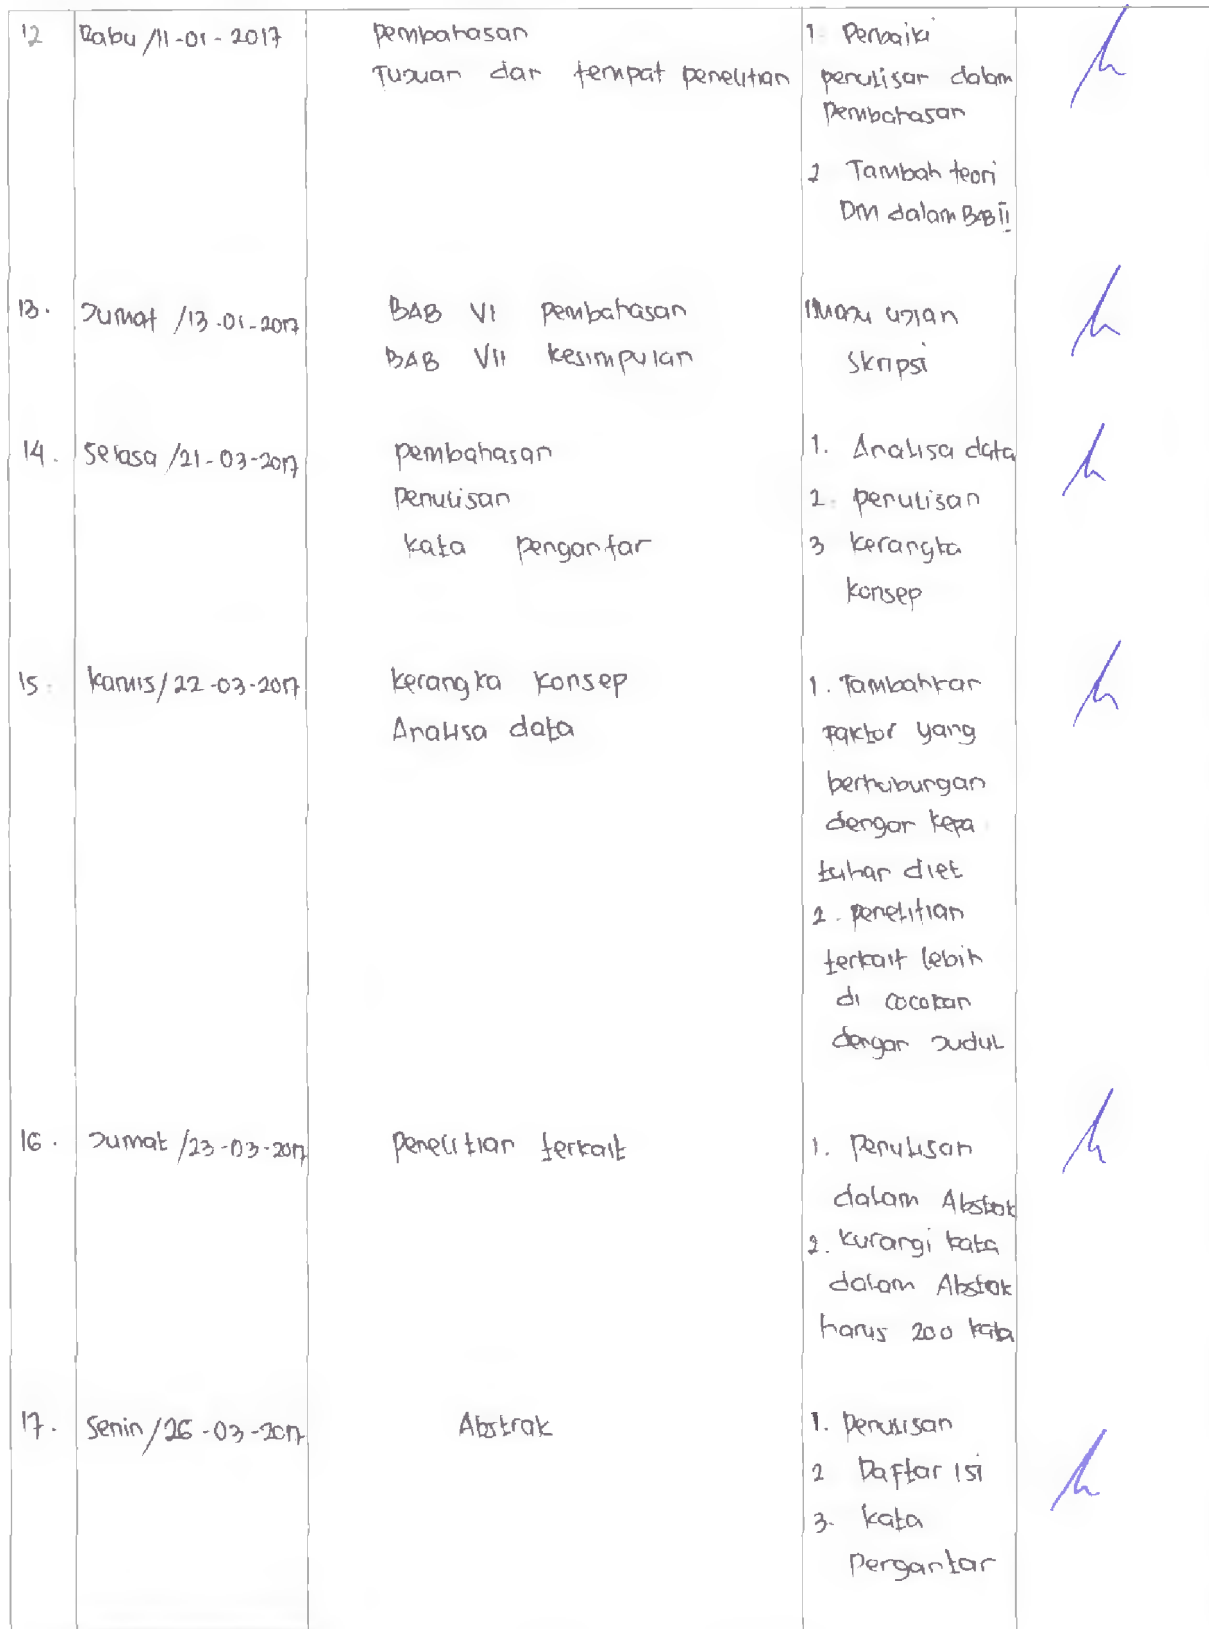 12 Rabu /11-01-2017 pembahasan 1. Perbaiki
Tujuan dan tempat penelitian penulisan dalam
Pembahasan
2 Tambah teori
DM dalam BAB II
13. Jumat /13-01-2017 BAB VI pembahasan Maju ujian
BAB VII kesimpulan Skripsi
14. Selasa /21-03-2017 pembahasan 1. Analisa data
Penulisan 2. penulisan
kata pengantar 3 kerangka
konsep
15. kamis/22-03-2017 kerangka konsep 1. Tambahkan
Analisa data Faktor yang
berhubungan
dengan kepa
tuhan diet
2. penelitian
terkait lebih
di cocokan
dengan Judul
16. Jumat /23-03-2017 penelitian terkait 1. Penulisan
dalam Abstrak
2. kurangi kata
dalam Abstrak
harus 200 kata
17. Senin /26-03-2017 Abstrak 1. Penulisan
2 Daftar isi
3. kata
Pengantar